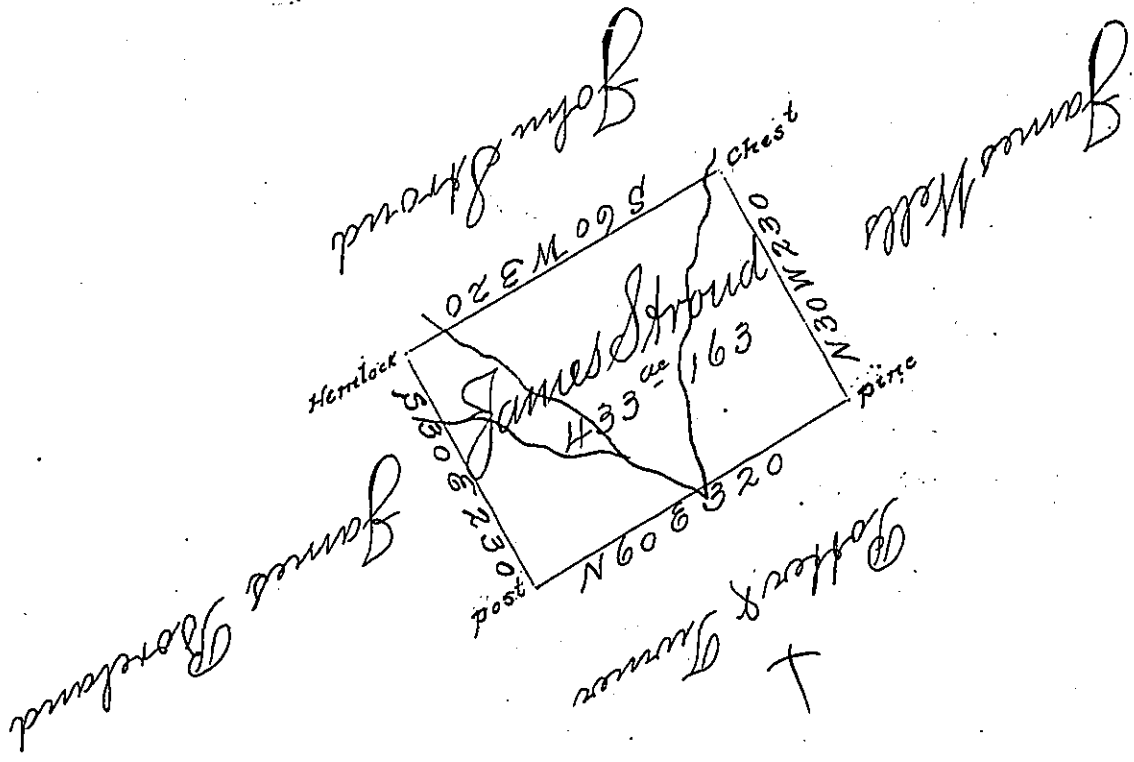 John Stroud
James Wells
Chest
S 60 W 320
N 30 W 230
James Stroud
433 ac 163
Hemlock
S 30 E 230
pine
N 60 E 320
post
James Boreland
Potter &
Turner